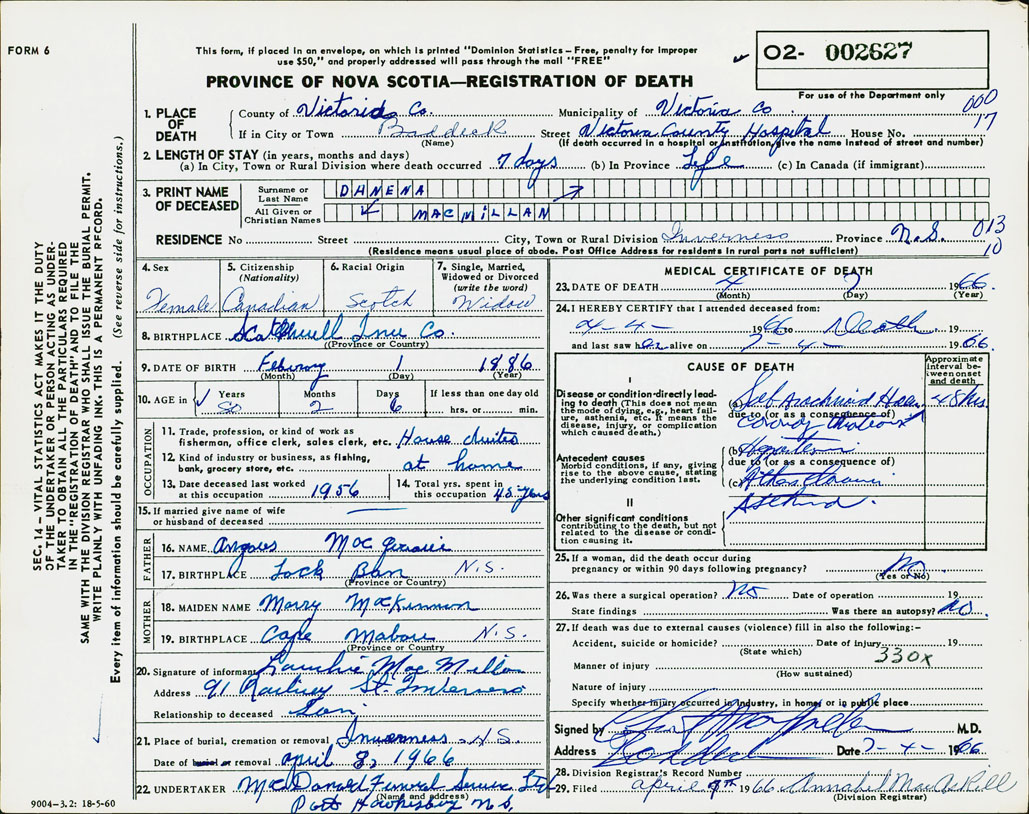 FORM 6
This form, if placed in an envelope, on which is printed "Dominion Statistics – Free, penalty for improper
use $50," and properly addressed will pass through the mail "FREE"
O2- 002627
PROVINCE OF NOVA SCOTIA—REGISTRATION OF DEATH
For use of the Department only
000
17
1. PLACE OF DEATH
County of Victoria Co. Municipality of Victoria Co
If in City or Town Baddeck Street Victoria County Hospital House No.
(Name) (If death occurred in a hospital or institution, give the name instead of street and number)
2. LENGTH OF STAY (in years, months and days)
(a) In City, Town or Rural Division where death occurred 7 days (b) In Province Life (c) In Canada (if immigrant)
3. PRINT NAME OF DECEASED
Surname or Last Name DHNENA
All Given or Christian Names MACMILLAN
RESIDENCE No Street City, Town or Rural Division Inverness Province N.S.
013
10
(Residence means usual place of abode. Post Office Address for residents in rural parts not sufficient)
4. Sex Female
5. Citizenship (Nationality) Canadian
6. Racial Origin Scotch
7. Single, Married, Widowed or Divorced (write the word) Widow
8. BIRTHPLACE Inve Co.
(Province or Country)
9. DATE OF BIRTH 1 1886
(Month) (Day) (Year)
10. AGE in Years Months Days If less than one day old
80 2 6 hrs. or min.
OCCUPATION
11. Trade, profession, or kind of work as fisherman, office clerk, sales clerk, etc. House duties
12. Kind of industry or business, as fishing, bank, grocery store, etc. at home
13. Date deceased last worked at this occupation 1956
14. Total yrs. spent in this occupation 45 years
15. If married give name of wife or husband of deceased
FATHER
16. NAME Angus Mac
17. BIRTHPLACE Lock Ban N.S.
(Province or Country)
MOTHER
18. MAIDEN NAME Marry MacKinnon
19. BIRTHPLACE Cape Mabou N.S.
(Province or Country)
20. Signature of informant Lauchie MacMillan
Address 91 Railway St. Inverness
Relationship to deceased Son
21. Place of burial, cremation or removal Inverness N.S
Date of burial or removal april 8, 1966
22. UNDERTAKER McDonald Funeral Service Ltd
(Name and address)
Port Hawkesbury N.S.
MEDICAL CERTIFICATE OF DEATH
23. DATE OF DEATH 4 7 1966
(Month) (Day) (Year)
24. I HEREBY CERTIFY that I attended deceased from:
4-4- 1966 to Death 19
and last saw her alive on 7-4- 1966.
CAUSE OF DEATH
Approximate interval between onset and death
I
Disease or condition directly leading to death (This does not mean the mode of dying, e.g., heart failure, asthenia, etc. It means the disease, injury, or complication which caused death.)
(a) 48 hrs
due to (or as a consequence of)
Antecedent causes
Morbid conditions, if any, giving rise to the above cause, stating the underlying condition last.
(b)
due to (or as a consequence of)
(c)
II
Other significant conditions contributing to the death, but not related to the disease or condition causing it.
25. If a woman, did the death occur during pregnancy or within 90 days following pregnancy? No
(Yes or No)
26. Was there a surgical operation? No Date of operation 19
State findings Was there an autopsy? No.
27. If death was due to external causes (violence) fill in also the following:-
Accident, suicide or homicide? Date of injury 19
(State which) 330X
Manner of injury
(How sustained)
Nature of injury
Specify whether injury occurred in industry, in home, or in public place
Signed by M.D.
Address Baddeck Date 7-4- 1966
28. Division Registrar's Record Number
29. Filed april 9th 1966 Annabel MacAskill
(Division Registrar)
SEC. 14 – VITAL STATISTICS ACT MAKES IT THE DUTY
OF THE UNDERTAKER OR PERSON ACTING AS UNDER-
TAKER TO OBTAIN ALL THE PARTICULARS REQUIRED
IN THE "REGISTRATION OF DEATH" AND TO FILE THE
SAME WITH THE DIVISION REGISTRAR WHO SHALL ISSUE THE BURIAL PERMIT.
WRITE PLAINLY WITH UNFADING INK. THIS IS A PERMANENT RECORD.
Every item of information should be carefully supplied. (See reverse side for instructions.)
9004-3.2: 18-5-60